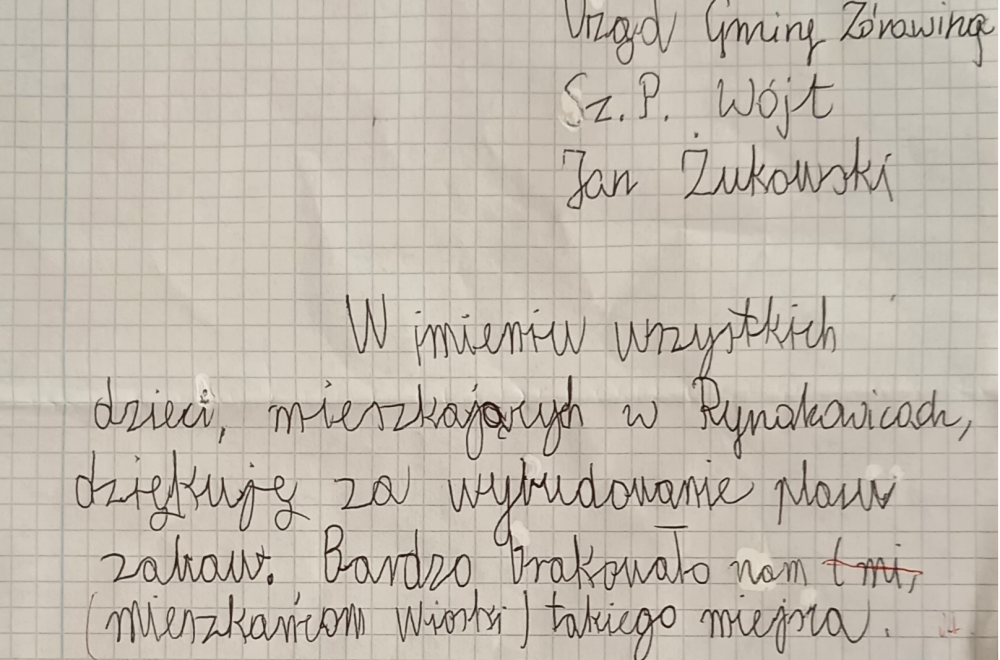 Urząd Gminy Żórawinę
Sz. P. Wójt
Jan Żukowski
W imieniu wszystkich
dzieci, mieszkających w Rynakowicach,
dziękuję za wybudowanie placu
zabaw. Bardzo brakowało nam
(mieszkańcom wioski) takiego miejsca.